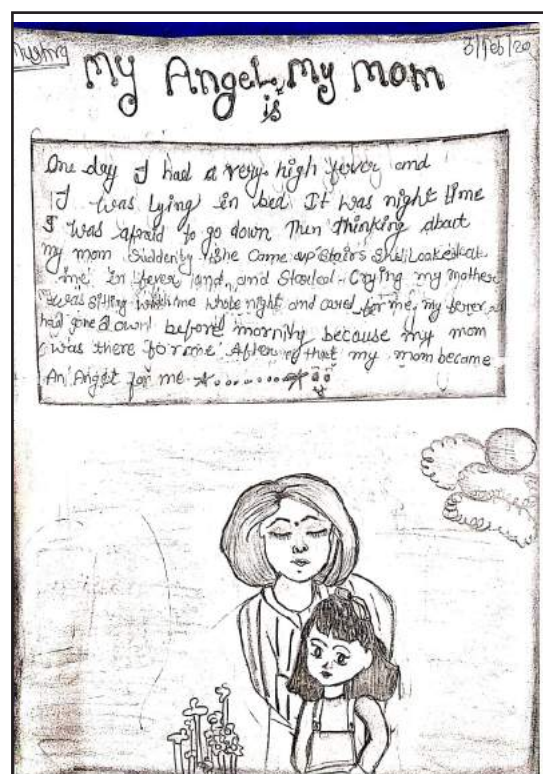 3/Feb/20
My Angel is My Mom
One day I had a very high fever and
I was Lying in bed It was night time
I was afraid to go down Then thinking about
my mom Suddenly she came up stairs She Looked at
me in fever and, and Started Crying my mother
was sitting with me whole night and cared for me, my fever
had gone down before morning because my mom
was there for me After that my mom became
An Angel for me